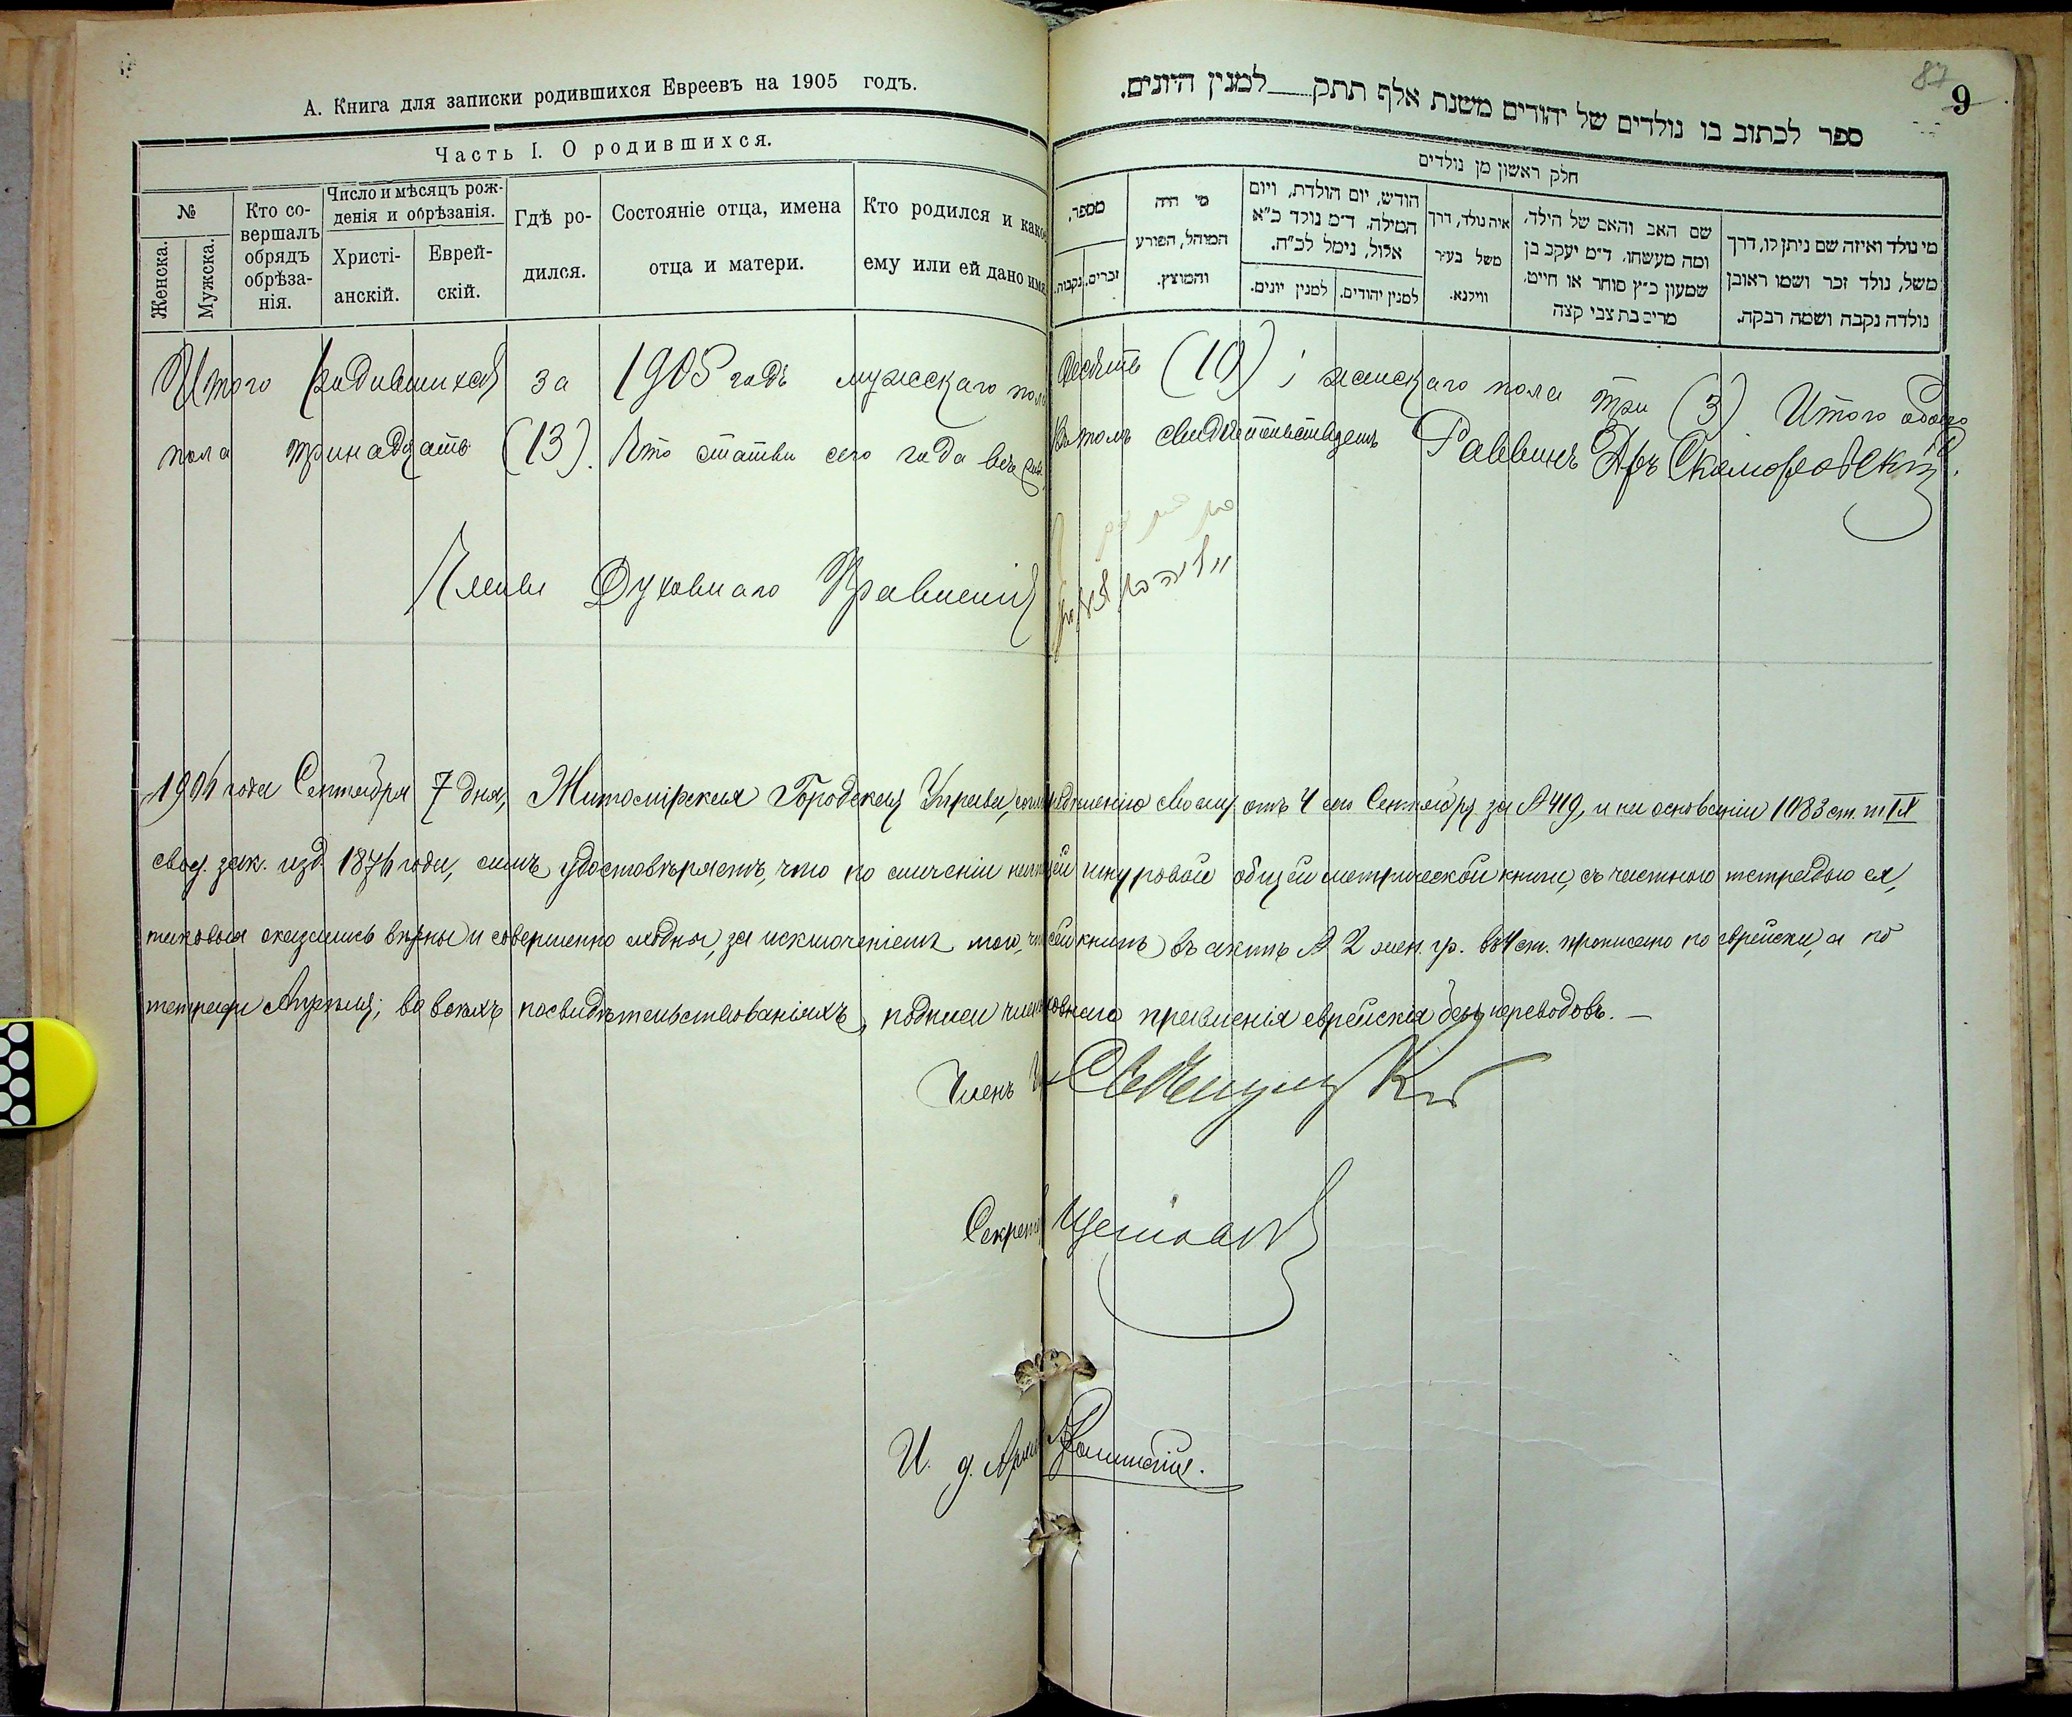 А. Книга для записки родившихся Евреевъ на 1905 годъ.
Часть I. О родившихся.
№
Женска.
Мужска.
Кто со-
вершалъ
обрядъ
обрѣза-
нія.
Число и мѣсяцъ рож-
денія и обрѣзанія.
Христі-
анскій.
Еврей-
скій.
Гдѣ ро-
дился.
Состояніе отца, имена
отца и матери.
Кто родился и какое
ему или ей дано имя
87
9
ספר לכתוב בו נולדים של יהודים משנת אלף תתק למנין היונים.
חלק ראשון מן נולדים
מספר.
זכרים.
נקבות.
מי היה
המוהל, הפורע
והמוצץ.
חודש, יום הולדת, ויום
המילה. ד״מ נולד כ״א
אלול, נימל לכ״ח.
למנין יהודים.
למנין יונים.
איה נולד, דרך
משל בעיר
ווילנא.
שם האב והאם של הילד,
ומה מעשהו. ד״מ יעקב בן
שמעון כ״ץ סוחר או חייט,
מרים בת צבי קצה
מי נולד ואיזה שם ניתן לו, דרך
משל, נולד זכר ושמו ראובן
נולדה נקבה ושמה רבקה.
Итого родившихся за 1905 годъ мужскаго пола десять (10) и женскаго пола три (3) Итого обоего
пола тринадцать (13). Что статьи сего года въ томъ свидетельствуетъ Раввинъ Д-ръ Скоморовскій.
Члены Духовнаго Правленія
1906 года Сентября 7 дня, Житомірская Городская Управа, согл. опредѣленію своему отъ 4 сего Сентября за № 419, и на основаніи 1083 ст. т. IX
свод. зак. изд. 1876 года, симъ удостовѣряетъ, что по сличеніи настоящей шнуровой общей метрической книги, съ частною тетрадью ея,
таковыя оказались вѣрны и совершенно сходны, за исключеніемъ того, что сей книгѣ въ актѣ № 2 жен. гр. въ 4 ст. прописано по еврейски, а по
тетради Апрѣля; во всѣхъ посвидѣтельствованіяхъ, подписи членовъ духовнаго правленія еврейскія безъ переводовъ. —
Членъ
Секретарь
И. д.